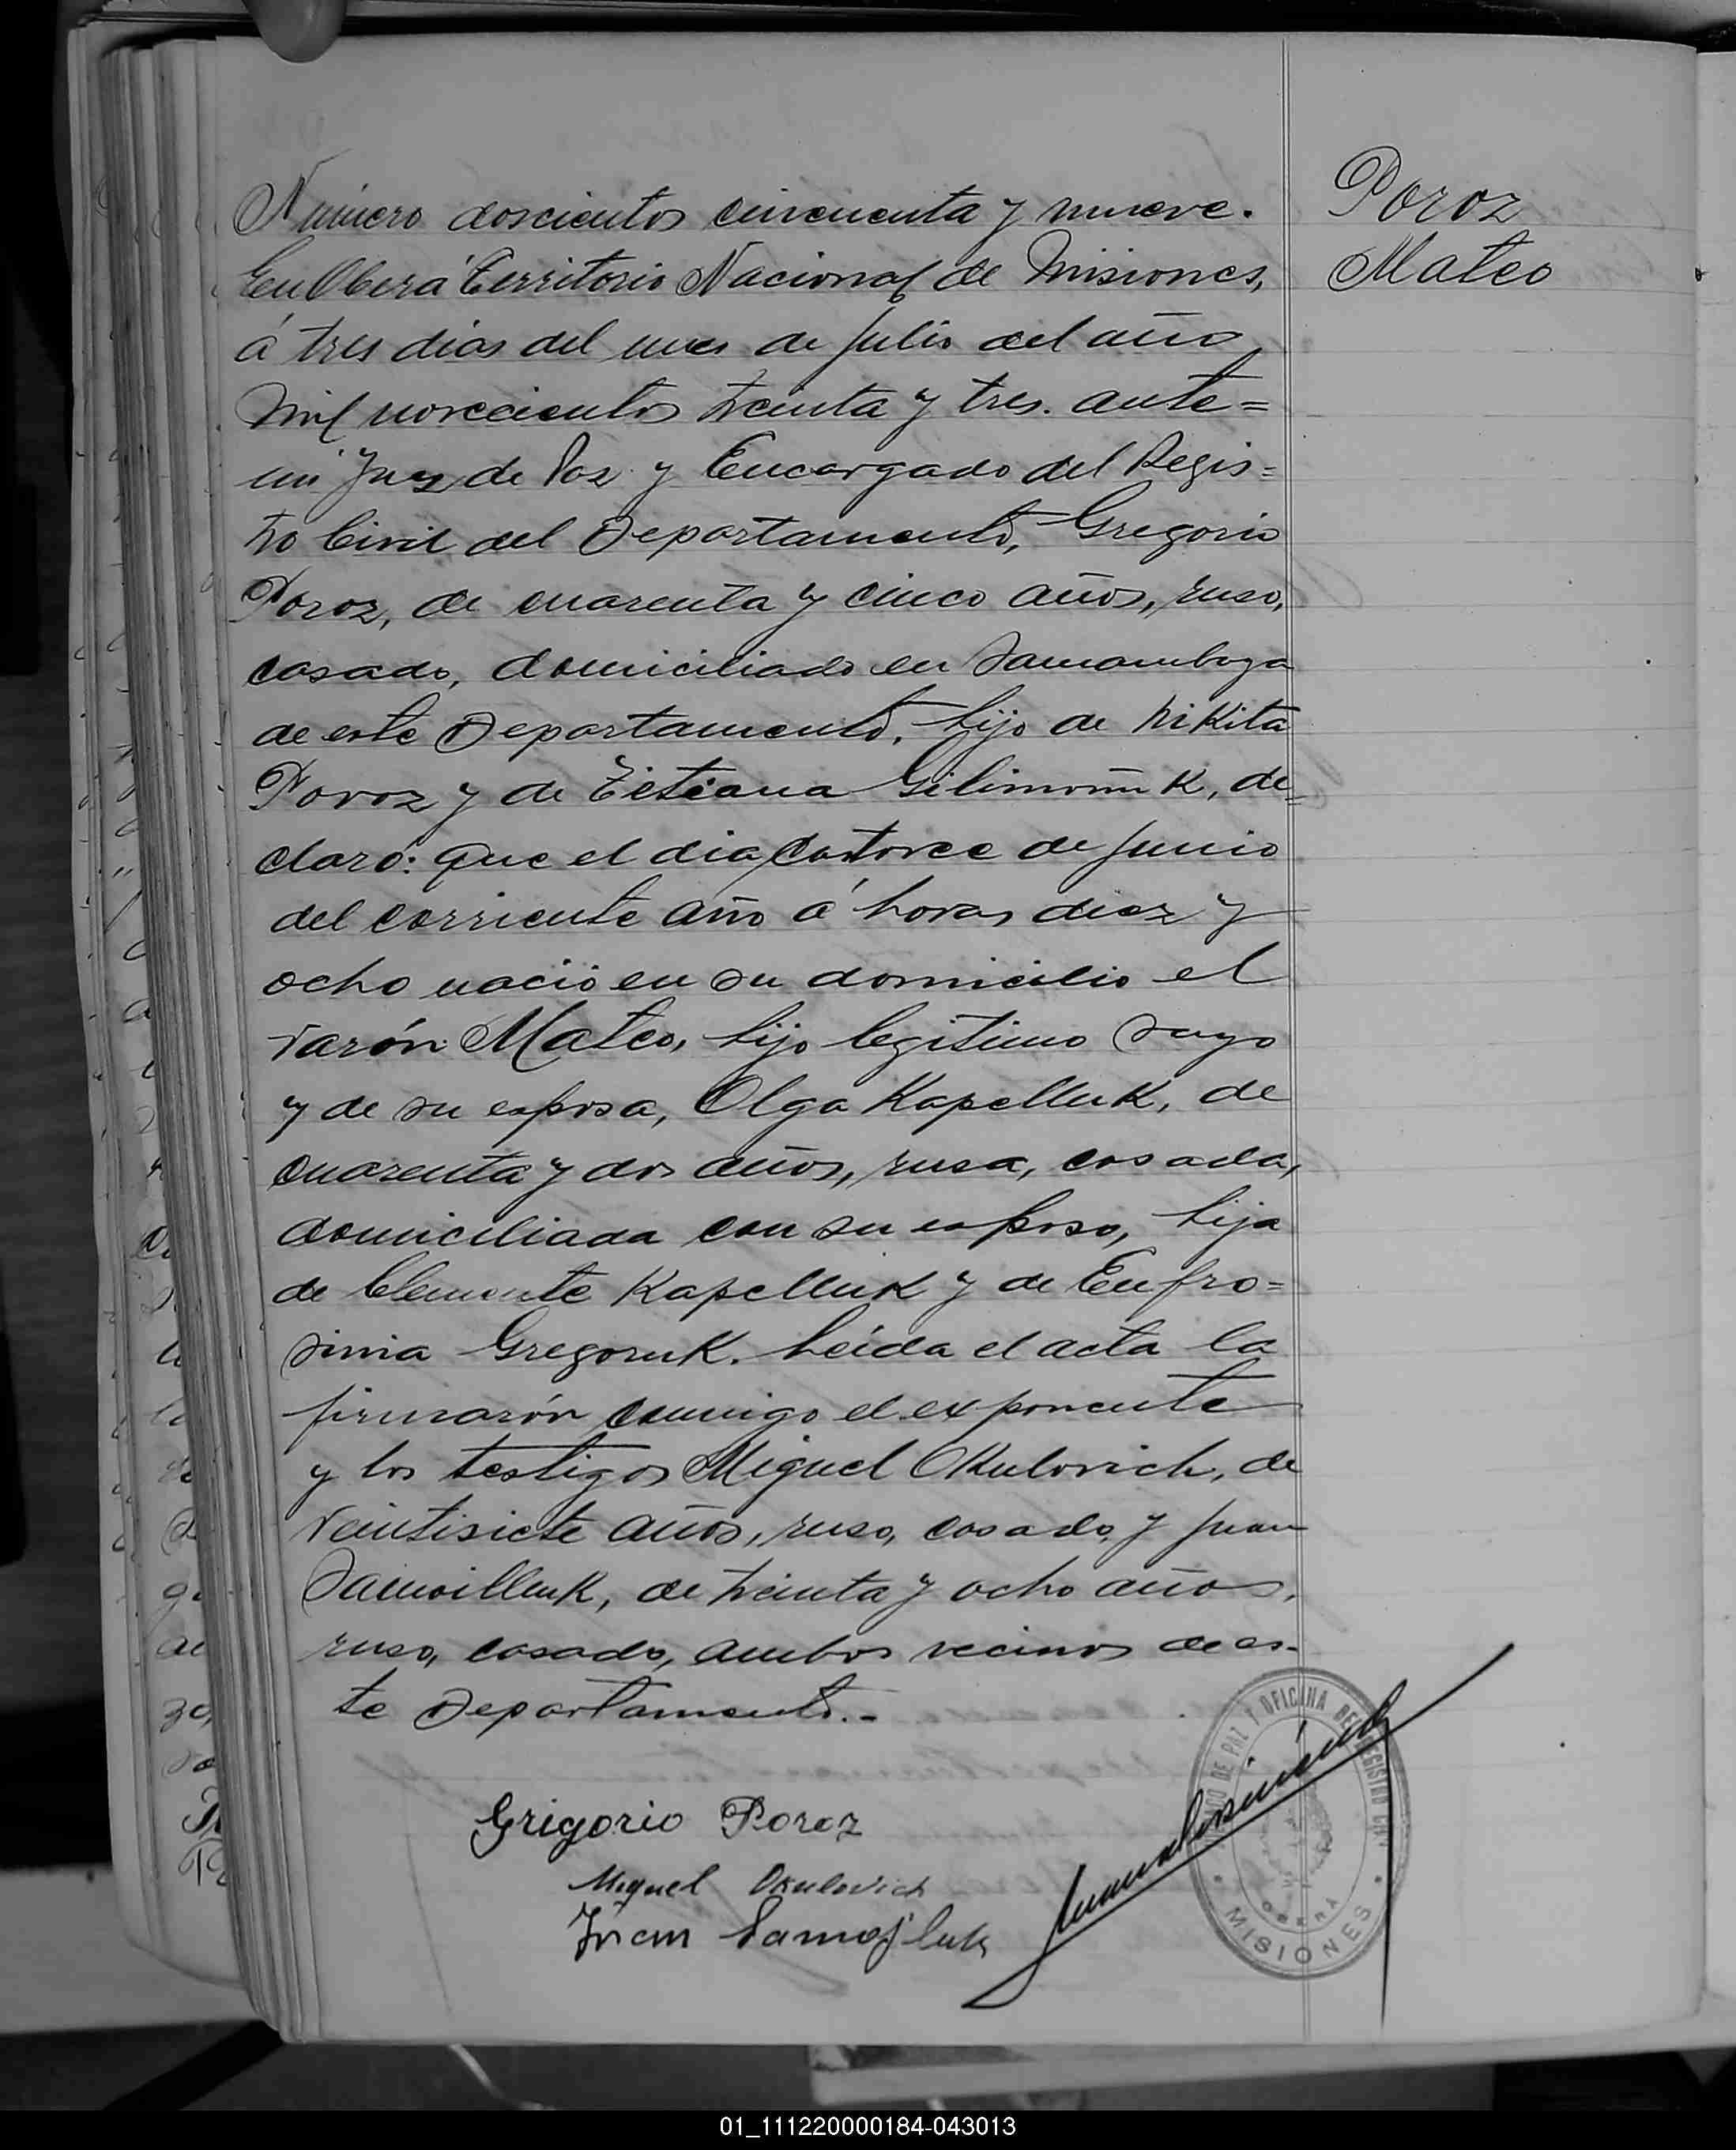 Poroz
Mateo
Número doscientos cincuenta y nueve.
En Oberá Territorio Nacional de Misiones,
á tres dias del mes de Julio del año
mil novecientos treinta y tres. ante=
mi Juez de Paz y Encargado del Regis=
tro Civil del Departamento, Gregorio
Poroz, de cuarenta y cinco años, ruso,
casado, domiciliado en Samambaya
de este Departamento, hijo de Nikita
Poroz y de Tetiana Gilimoñuk, de=
claró: Que el dia catorce de Junio
del corriente año á horas diez y
ocho nació en su domicilio el
varón Mateo, hijo legitimo suyo
y de su esposa, Olga Kapelluk, de
cuarenta y dos años, rusa, casada,
domiciliada con su esposo, hija
de Clemente Kapelluk y de Eufro=
sinia Gregoruk. Leida el acta la
firmarón conmigo el exponente
y los testigos Miguel Okulovich, de
veintisiete años, ruso, casado, y Juan
Samoilluk, de treinta y ocho años,
ruso, casado, ambos vecinos de es-
te Departamento.-
Grigorio Poroz
Miguel Okulovich
Juan Samojluk
JUZGADO DE PAZ Y OFICINA DEL REGISTRO CIVIL
OBERA
MISIONES
01_111220000184-043013